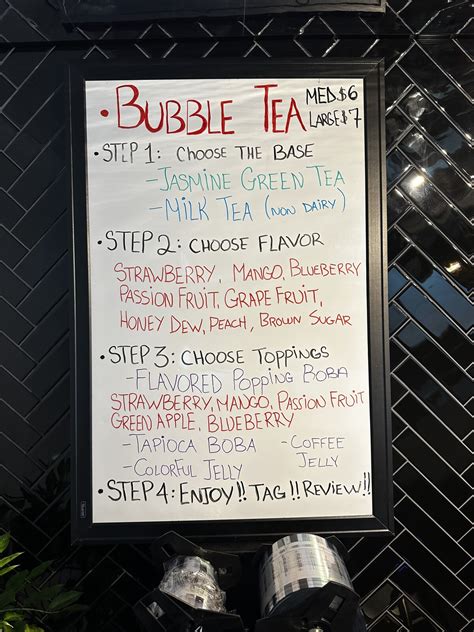 • BUBBLE TEA MED.$6
LARGE$7
• STEP 1: CHOOSE THE BASE
- JASMINE GREEN TEA
- MILK TEA (NON DAIRY)
• STEP 2: CHOOSE FLAVOR
STRAWBERRY, MANGO, BLUEBERRY
PASSION FRUIT, GRAPE FRUIT,
HONEY DEW, PEACH, BROWN SUGAR
• STEP 3: CHOOSE TOPPINGS
- FLAVORED POPPING BOBA
STRAWBERRY, MANGO, PASSION FRUIT
GREEN APPLE, BLUEBERRY
- TAPIOCA BOBA - COFFEE
- COLORFUL JELLY JELLY
• STEP 4: ENJOY!! TAG!! REVIEW!!